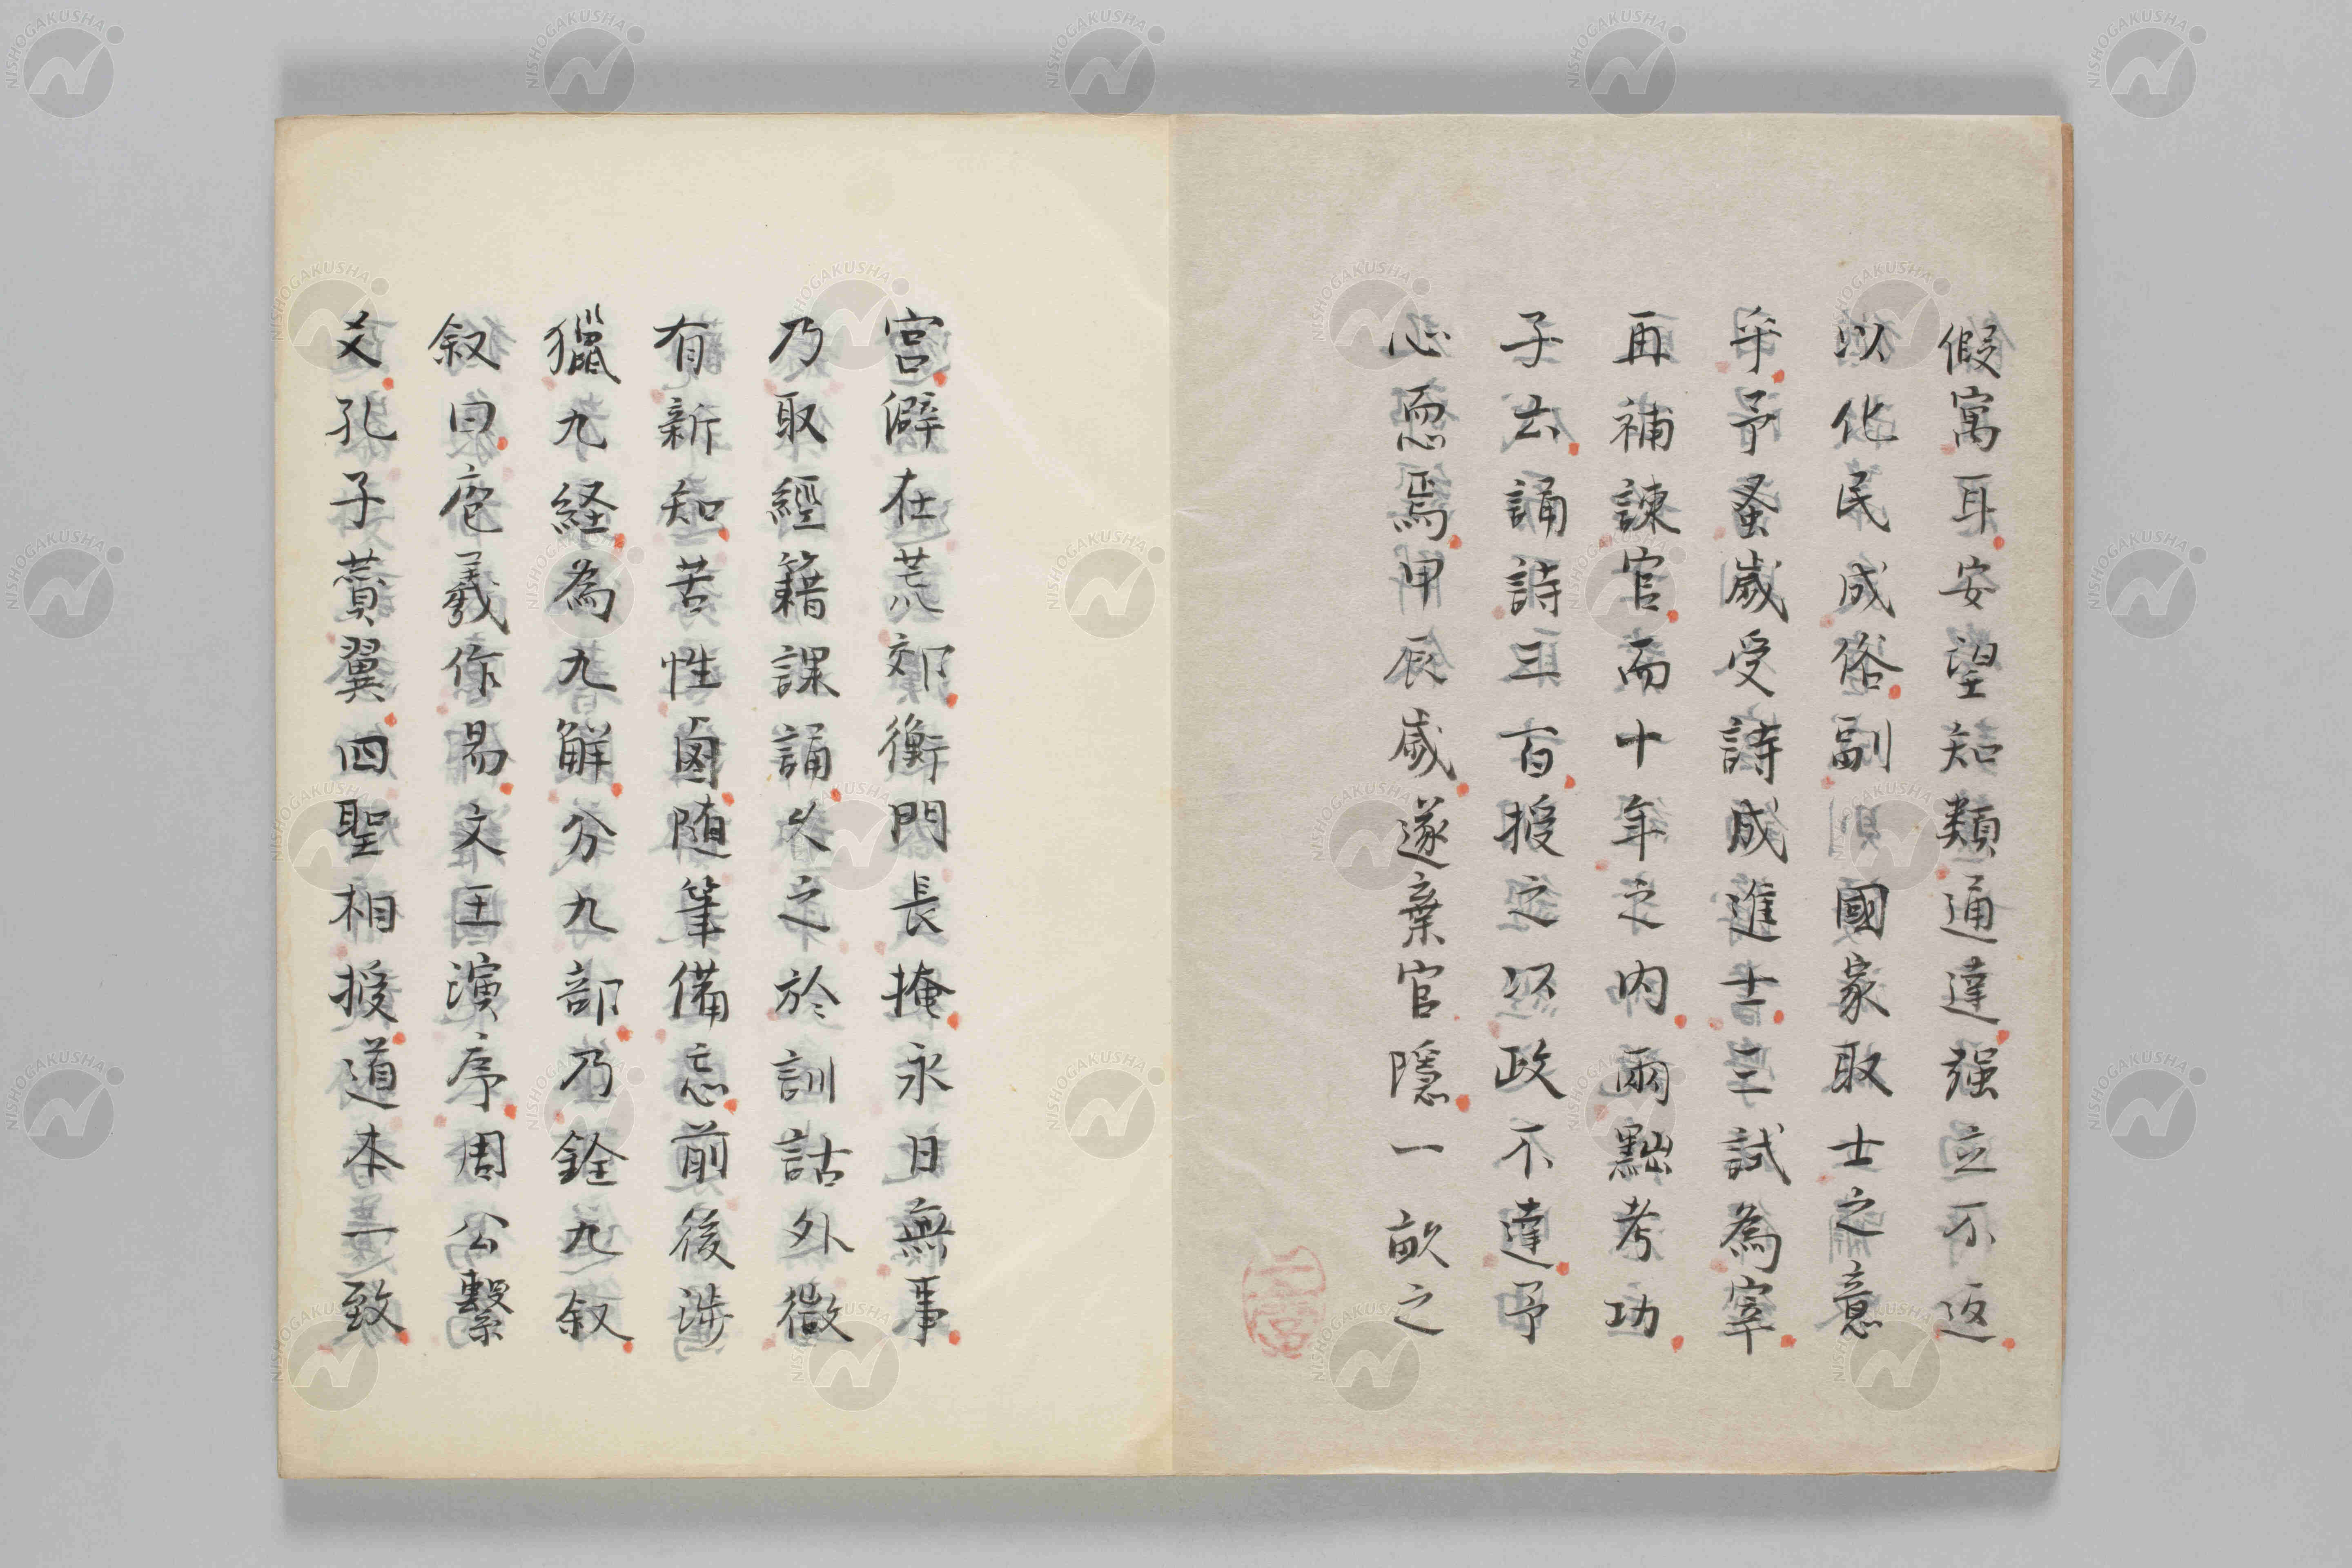 假寓耳安望知類通達强立不返
以化民成俗副國家取士之意
乎予蚤嵗受詩成進士三試為宰
再補諫官而十年之内兩黜考功
子云誦詩三百授之以政不達予
心恧焉甲辰嵗遂棄官隱一畝之
宮僻在荒郊衡門長掩永日無事
乃取經籍課誦久之於訓詁外微
有新知苦性鹵随筆備忘前後涉
獵九経為九解分九部乃銓九叙
叙曰庖羲作易文王演序周公繫
爻孔子賛翼四聖相授道本一致
NISHOGAKUSHA